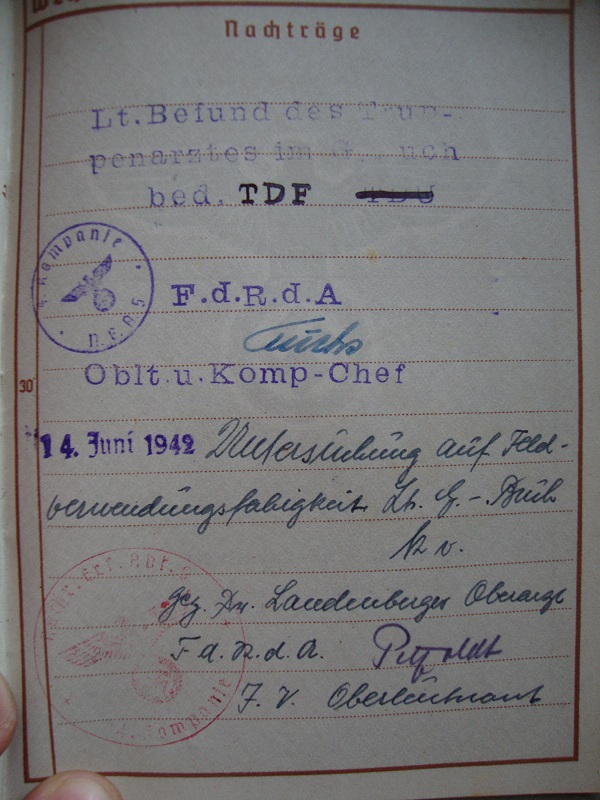 Nachträge
Lt.Befund des Trup-
penarztes im G. uch
bed. TDF TDU
4. Kompanie
N.E.A 5
F.d.R.d.A
Fuchs
Oblt.u.Komp-Chef
30
14. Juni 1942 Untersuchung auf Feld-
verwendungsfähigkeit Lt. G.-Buch
kv.
gez. Dr. Landenberger Oberarzt
F.d.R.d.A. Petzoldt
J. V. Oberleutnant
Kompanie